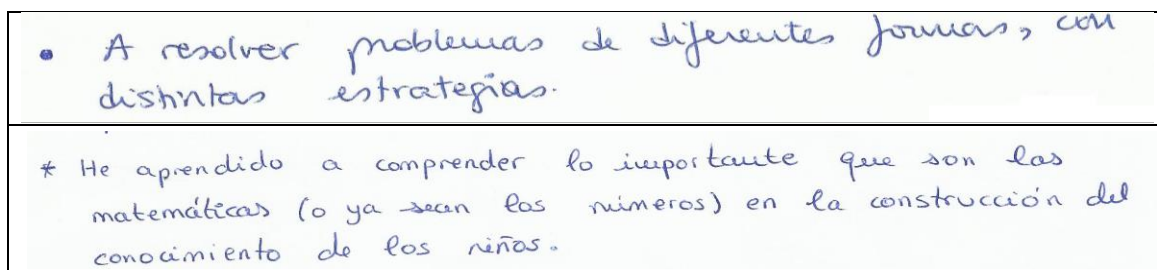 • A resolver problemas de diferentes formas, con
distintas estrategias.
* He aprendido a comprender lo importante que son las
matemáticas (o ya sean los números) en la construcción del
conocimiento de los niños.